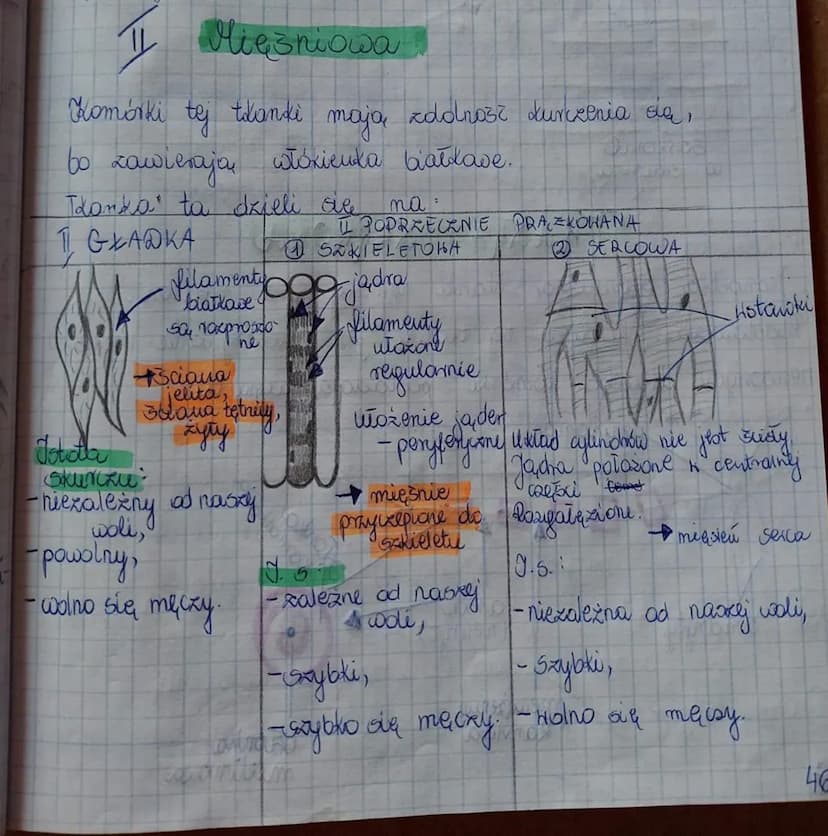 II
Mięśniowa
Komórki tej tkanki mają zdolność kurczenia się,
bo zawierają włókienka białkowe.
Tkanka ta dzieli się na:
I GŁADKA
filamenty
białkowe
są rozproszo-
ne
→ ściana
jelita,
ściana tętnicy,
żyły
Istota
skurczu:
- niezależny od naszej
woli,
- powolny,
- wolno się męczy.
II POPRZECZNIE PRĄŻKOWANA
① SZKIELETOWA
jądra
filamenty
ułożone
regularnie
ułożenie jąder
- peryferyczne
→ mięśnie
przyczepione do
szkieletu
I. s.:
- zależne od naszej
woli,
- szybki,
- szybko się męczy.
② SERCOWA
wstawki
Układ cylindrów nie jest ścisły
Jądra położone w centralnej
części
Rozgałęzione.
→ mięsień serca
I.s.:
- niezależna od naszej woli,
- szybki,
- wolno się męczy.
46